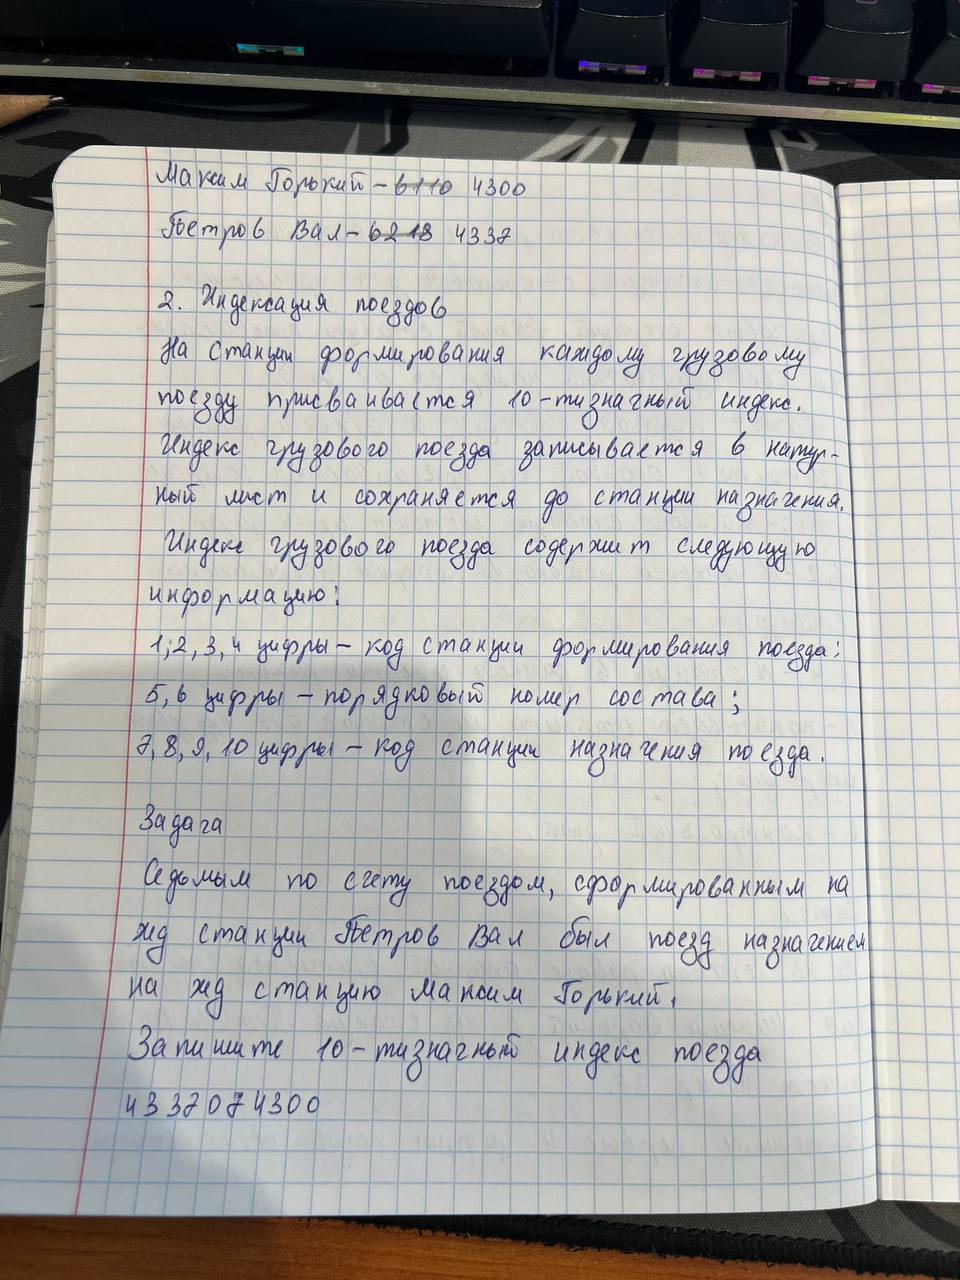 Максим Горький – 6110 4300
Петров Вал – 6218 4337
2. Индексация поездов
На станции формирования каждому грузовому
поезду присваивается 10-тизначный индекс.
Индекс грузового поезда записывается в натур-
ный лист и сохраняется до станции назначения.
Индекс грузового поезда содержит следующую
информацию:
1,2,3,4 цифры – код станции формирования поезда;
5,6 цифры – порядковый номер состава;
7,8,9,10 цифры – код станции назначения поезда.
Задача
Седьмым по счету поездом, сформированным на
жд станции Петров Вал был поезд назначением
на жд станцию Максим Горький.
Запишите 10-тизначный индекс поезда
4337074300